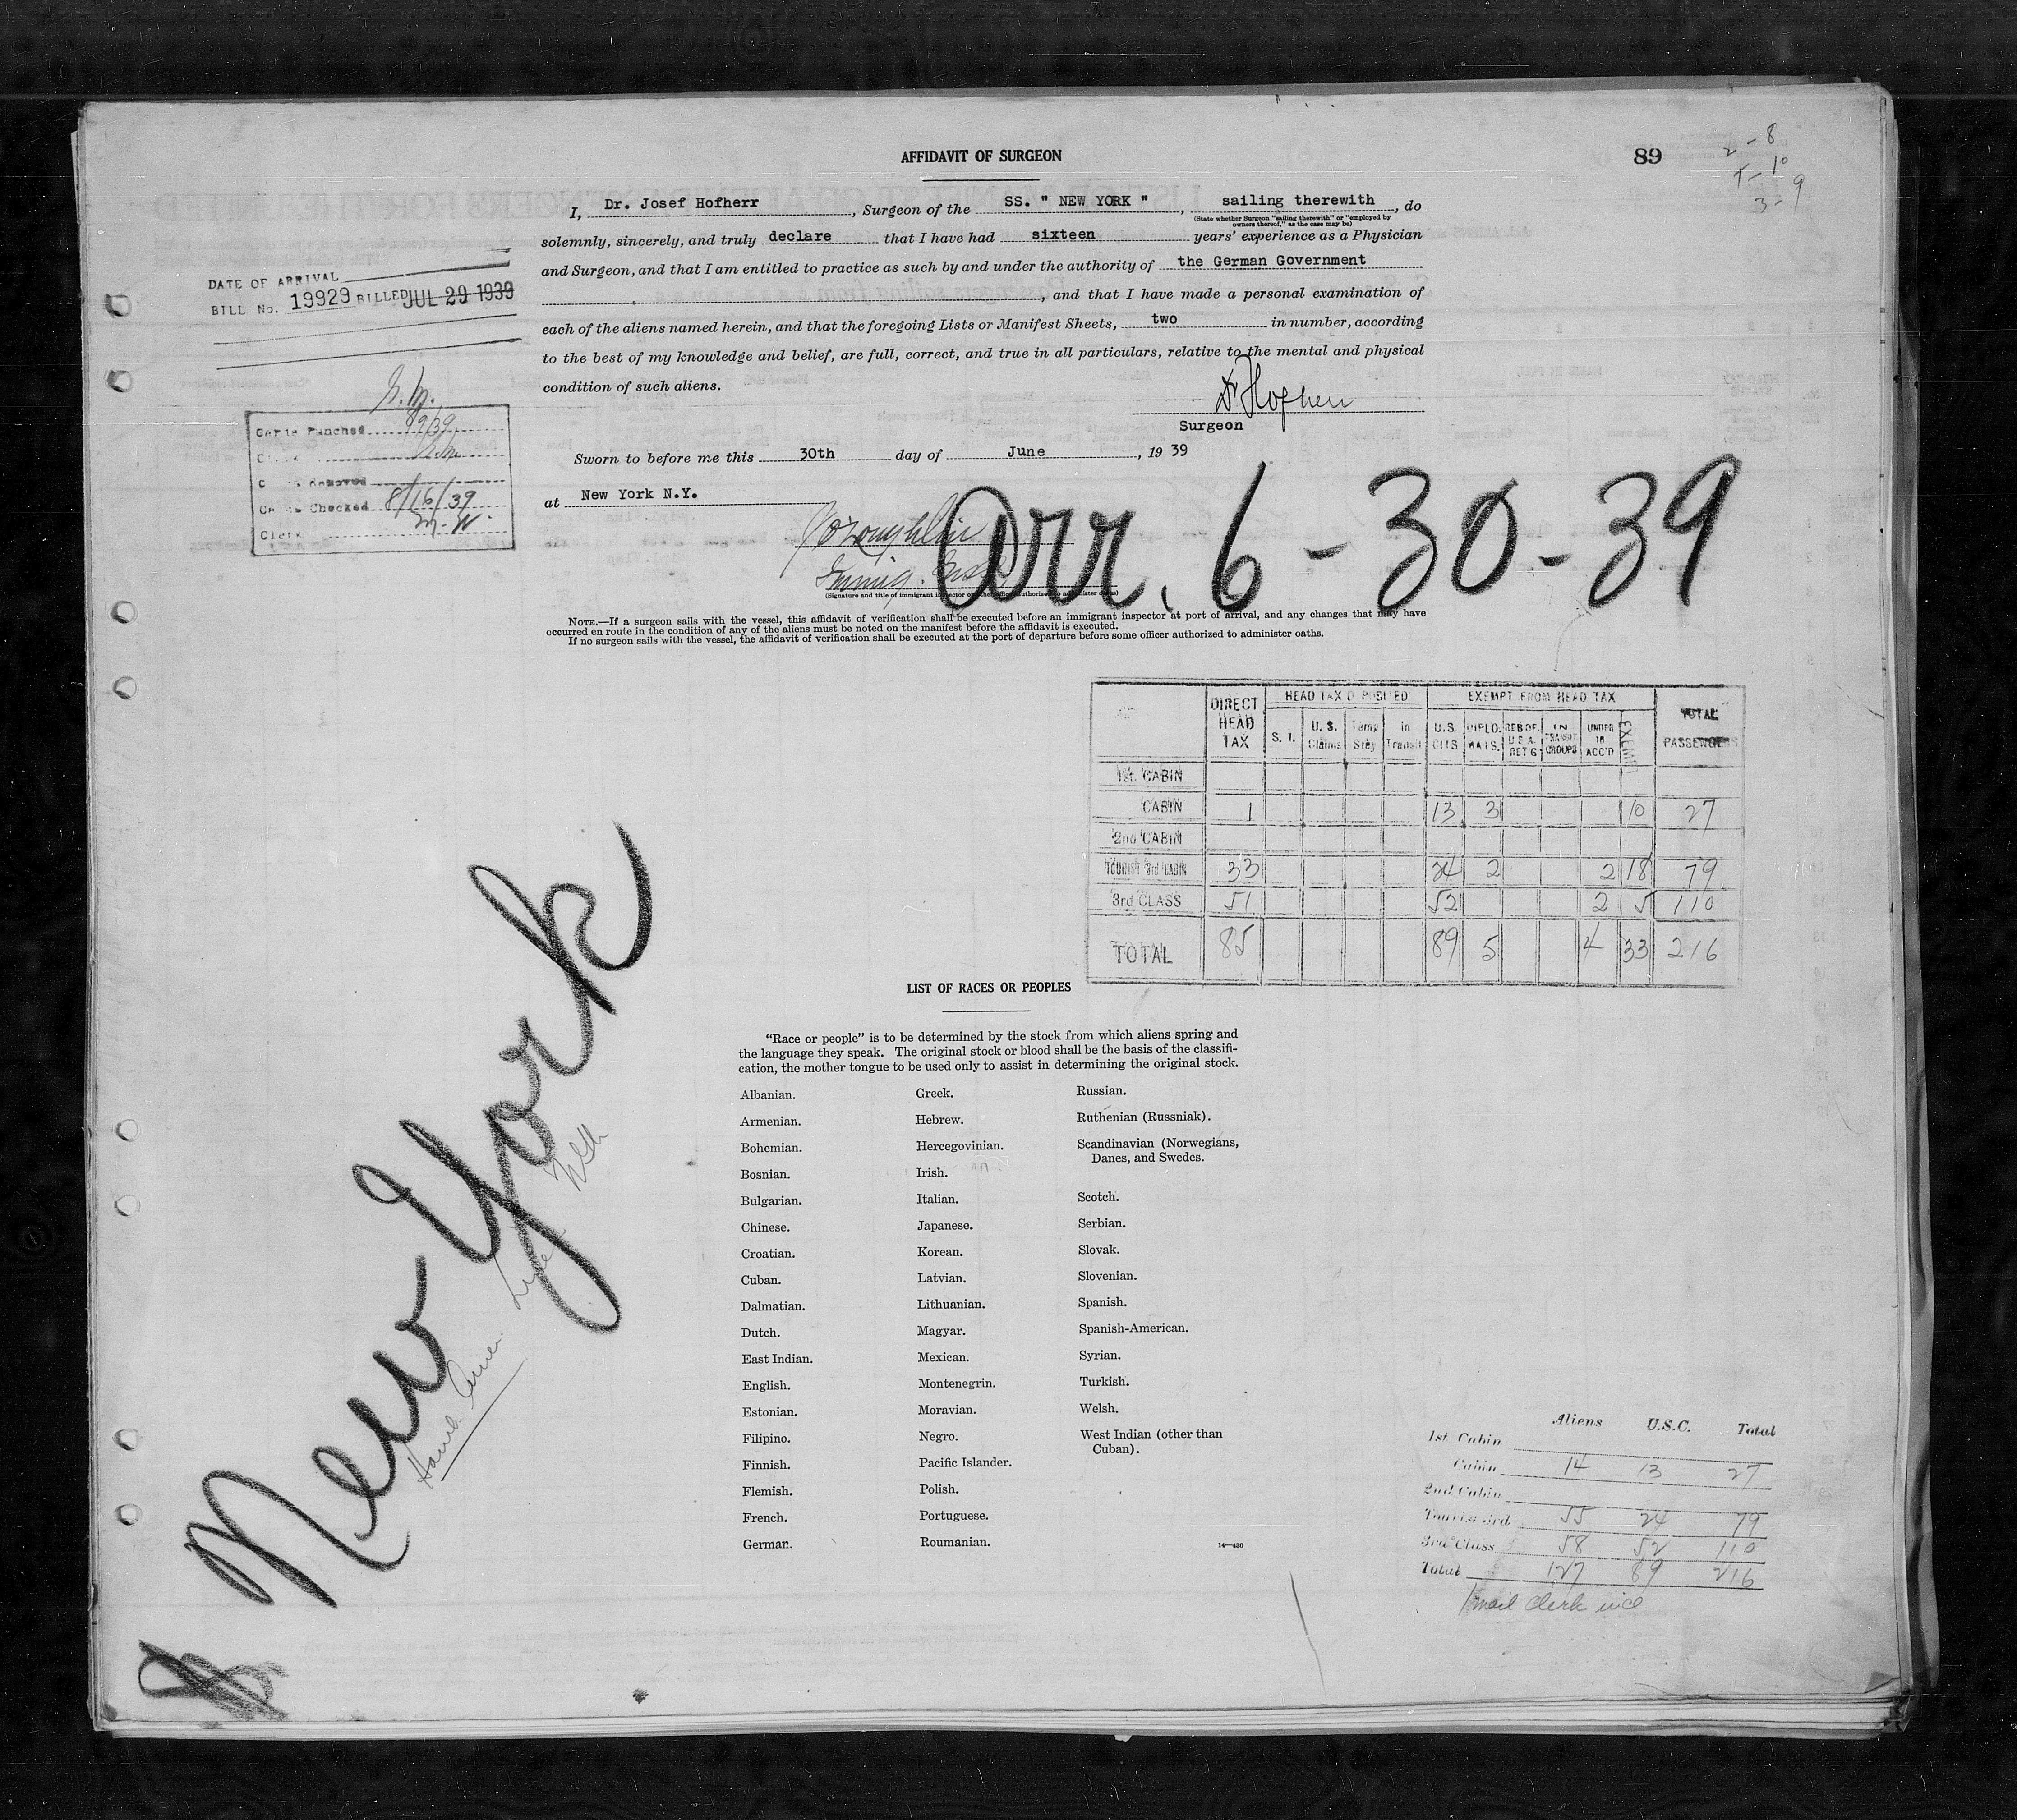 AFFIDAVIT OF SURGEON
89
2 - 8
1 - 10
3 - 9
I, Dr. Josef Hofherr, Surgeon of the SS. " NEW YORK ", sailing therewith, do
(State whether Surgeon "sailing therewith" or "employed by
owners thereof," as the case may be)
solemnly, sincerely, and truly declare that I have had sixteen years' experience as a Physician
and Surgeon, and that I am entitled to practice as such by and under the authority of the German Government
, and that I have made a personal examination of
each of the aliens named herein, and that the foregoing Lists or Manifest Sheets, two in number, according
to the best of my knowledge and belief, are full, correct, and true in all particulars, relative to the mental and physical
condition of such aliens.
Dr Hofherr
Surgeon
Sworn to before me this 30th day of June, 19 39
at New York N.Y.
Immig. Insp.
(Signature and title of immigrant inspector or other officer authorized to administer oaths)
Arr. 6-30-39
DATE OF ARRIVAL
BILL No. 19929 BILLED JUL 29 1939
Cards Punched
Clerk
Cards Removed
Cards Checked 8/16/39
Clerk M.W.
NOTE.—If a surgeon sails with the vessel, this affidavit of verification shall be executed before an immigrant inspector at port of arrival, and any changes that may have
occurred en route in the condition of any of the aliens must be noted on the manifest before the affidavit is executed.
If no surgeon sails with the vessel, the affidavit of verification shall be executed at the port of departure before some officer authorized to administer oaths.
DIRECT HEAD TAX HEAD TAX DEPOSITED EXEMPT FROM HEAD TAX TOTAL PASSENGERS
S. T. U. S. Claims Temp Stay In Transit U.S. CITS DIPLOMATS. RES OF U.S.A. RET'G IN TRANSIT GROUPS UNDER 16 ACC'D EXEMPT
1st. CABIN
CABIN 1 13 3 10 27
2nd CABIN
TOURIST 3rd CABIN 33 24 2 2 18 79
3rd CLASS 51 52 2 5 110
TOTAL 85 89 5 4 33 216
New York
Line
LIST OF RACES OR PEOPLES
"Race or people" is to be determined by the stock from which aliens spring and
the language they speak. The original stock or blood shall be the basis of the classifi-
cation, the mother tongue to be used only to assist in determining the original stock.
Albanian.
Armenian.
Bohemian.
Bosnian.
Bulgarian.
Chinese.
Croatian.
Cuban.
Dalmatian.
Dutch.
East Indian.
English.
Estonian.
Filipino.
Finnish.
Flemish.
French.
German.
Greek.
Hebrew.
Hercegovinian.
Irish.
Italian.
Japanese.
Korean.
Latvian.
Lithuanian.
Magyar.
Mexican.
Montenegrin.
Moravian.
Negro.
Pacific Islander.
Polish.
Portuguese.
Roumanian.
Russian.
Ruthenian (Russniak).
Scandinavian (Norwegians,
Danes, and Swedes.
Scotch.
Serbian.
Slovak.
Slovenian.
Spanish.
Spanish-American.
Syrian.
Turkish.
Welsh.
West Indian (other than
Cuban).
14—430
Aliens U.S.C. Total
1st. Cabin
Cabin 14 13 27
2nd Cabin
Tourist 3rd 55 24 79
3rd Class 58 52 110
Total 127 89 216
1 mail clerk incl